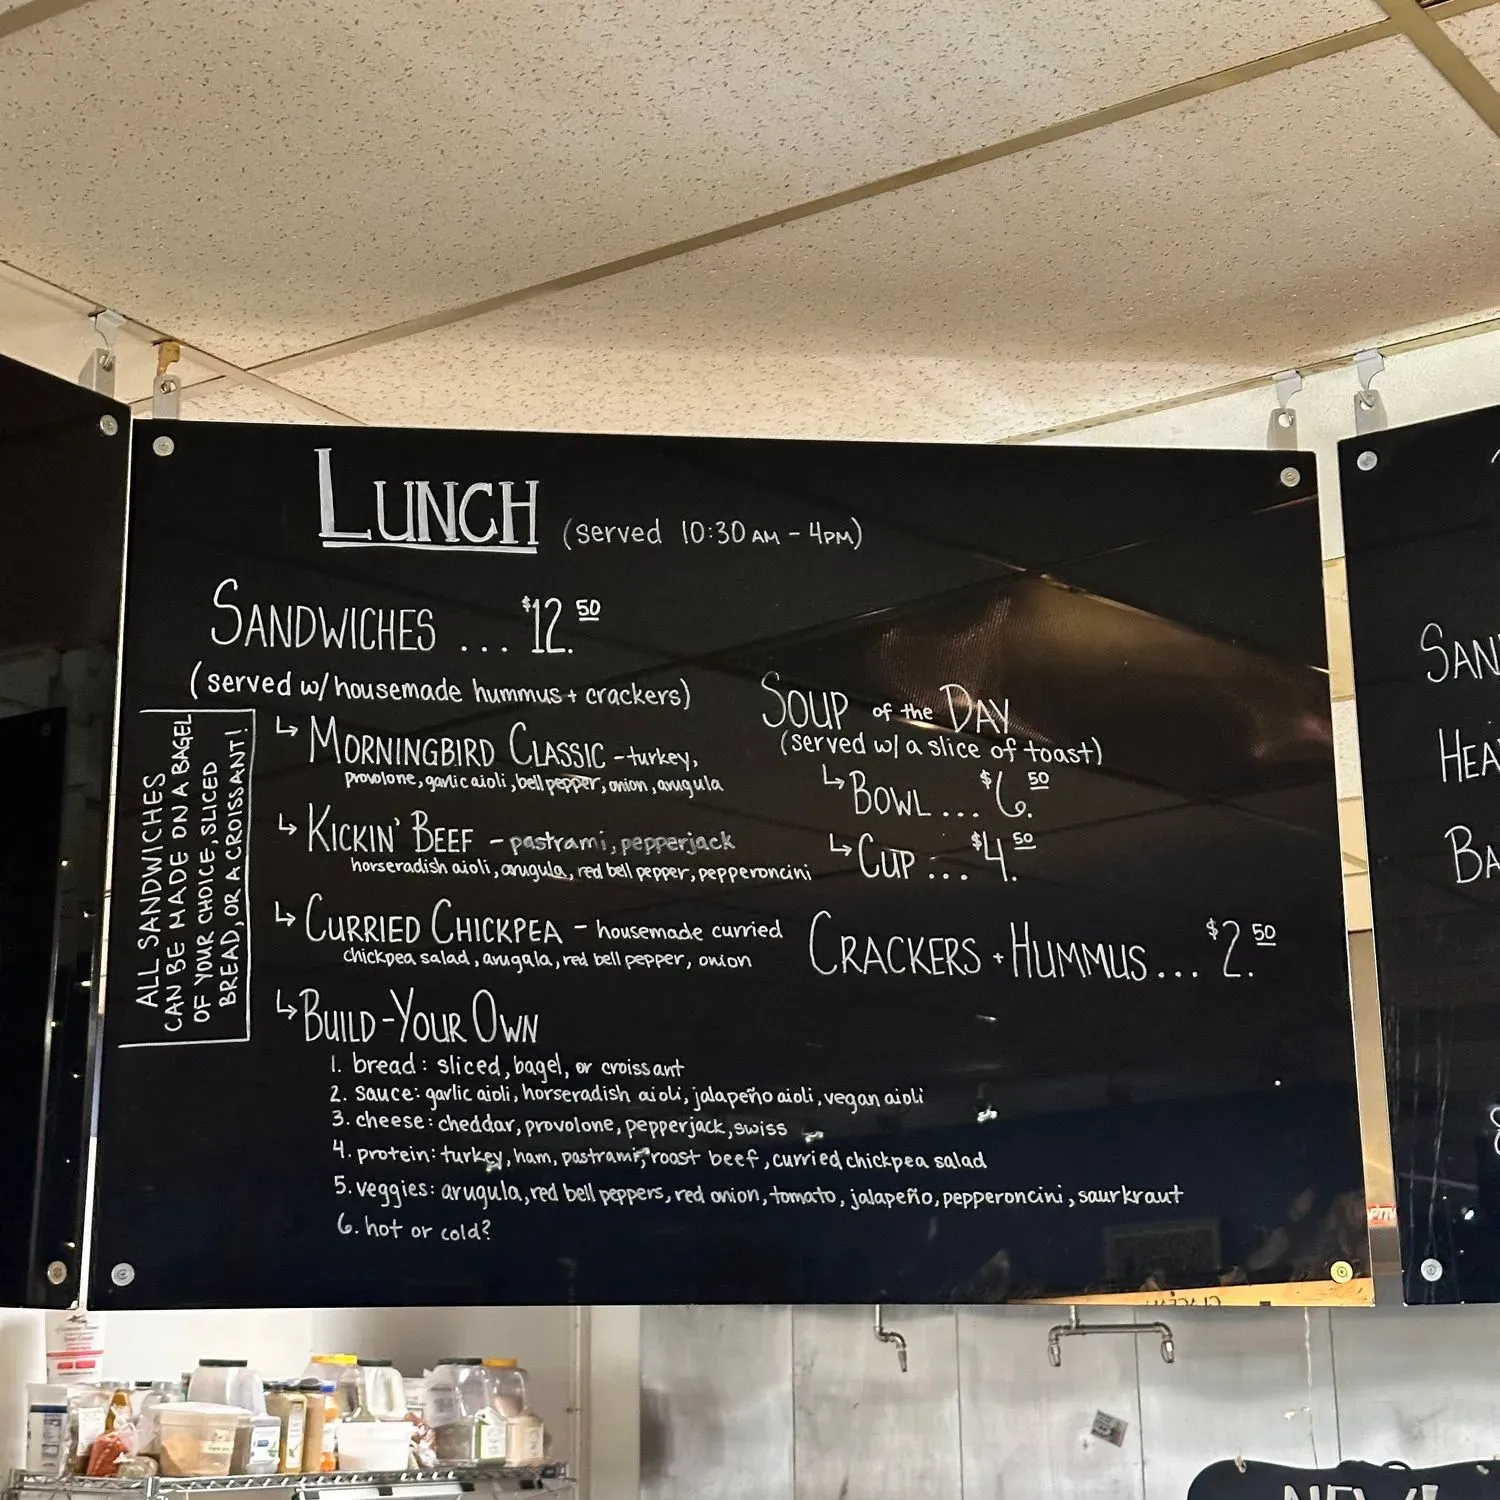 LUNCH (served 10:30 AM - 4PM)
SANDWICHES ... $12.50
(served w/ housemade hummus + crackers)
↳ MORNINGBIRD CLASSIC - turkey,
provolone, garlic aioli, bell pepper, onion, arugula
↳ KICKIN' BEEF - pastrami, pepperjack
horseradish aioli, arugula, red bell pepper, pepperoncini
↳ CURRIED CHICKPEA - housemade curried
chickpea salad, arugala, red bell pepper, onion
↳ BUILD-YOUR OWN
1. bread: sliced, bagel, or croissant
2. sauce: garlic aioli, horseradish aioli, jalapeño aioli, vegan aioli
3. cheese: cheddar, provolone, pepperjack, swiss
4. protein: turkey, ham, pastrami, roast beef, curried chickpea salad
5. veggies: arugula, red bell peppers, red onion, tomato, jalapeño, pepperoncini, saurkraut
6. hot or cold?
ALL SANDWICHES
CAN BE MADE ON A BAGEL
OF YOUR CHOICE, SLICED
BREAD, OR A CROISSANT!
SOUP of the DAY
(served w/ a slice of toast)
↳ BOWL ... $6.50
↳ CUP ... $4.50
CRACKERS + HUMMUS ... $2.50
SAN
HEA
BA
NEW!